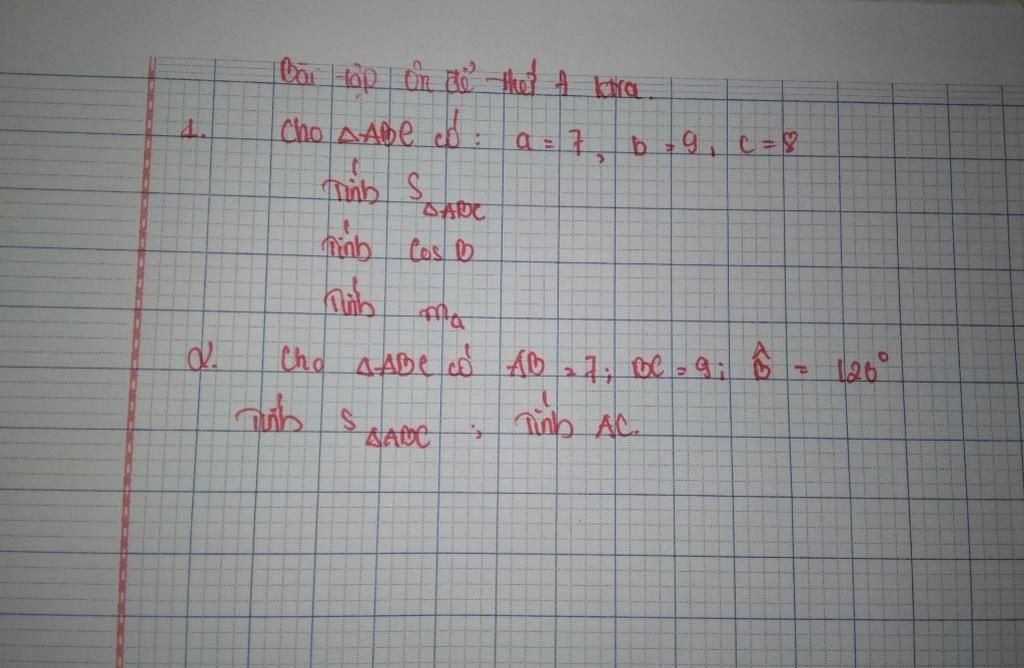 Bài tập ôn để thi
1. Cho △ABC có: a = 7, b = 9, c = 8
Tính S△ABC
Tính cos B
Tính ma
2. Cho △ABC có AB = 7; BC = 9; B̂ = 120°
Tính S△ABC ; Tính AC.